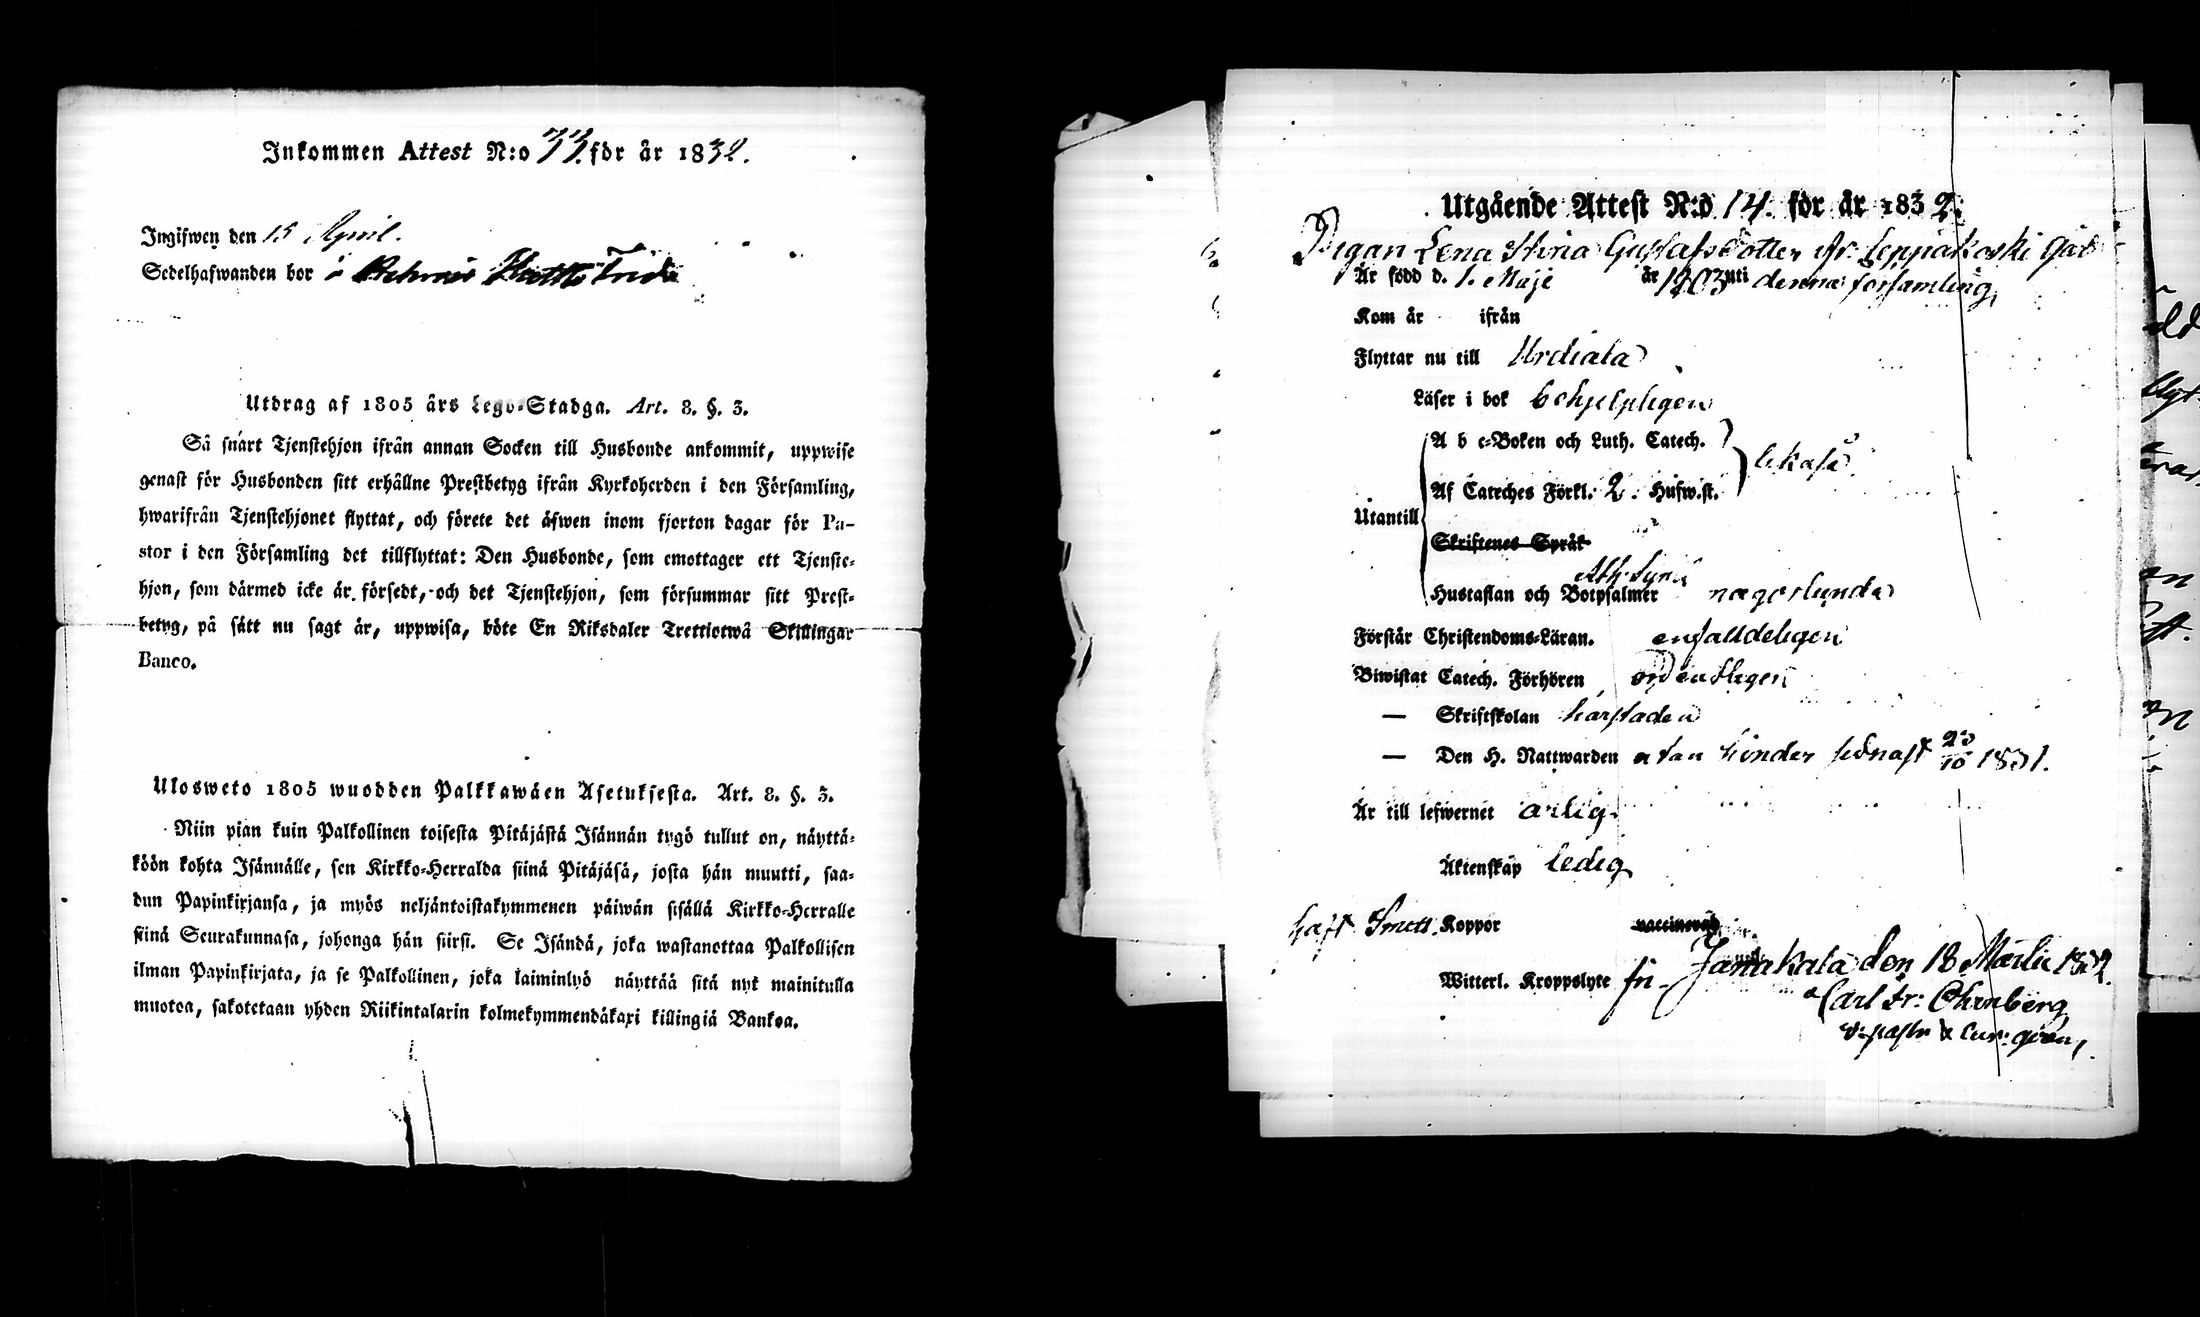 Inkommen Attest N:o 33. för år 1832.
Ingifwen den 15 April.
Sedelhafwanden bor i
Utdrag af 1805 års Lego-Stadga. Art. 8. §. 3.
Så snart Tjenstehjon ifrån annan Socken till Husbonde ankommit, uppwise
genast för Husbonden sitt erhållne Prestbetyg ifrån Kyrkoherden i den Församling,
hwarifrån Tjenstehjonet flyttat, och förete det äfwen inom fjorton dagar för Pa-
stor i den Församling det tillflyttat: Den Husbonde, som emottager ett Tjenste-
hjon, som därmed icke är försedt, och det Tjenstehjon, som försummar sitt Prest-
betyg, på sätt nu sagt är, uppwisa, böte En Riksdaler Trettiotwå Skillingar
Banco.
Ulosweto 1805 wuodden Palkkawäen Asetuksesta. Art. 8. §. 3.
Niin pian kuin Palkollinen toisesta Pitäjästä Isännän tygö tullut on, näyttä-
köön kohta Isännälle, sen Kirkko-Herralda siinä Pitäjäsä, josta hän muutti, saa-
dun Papinkirjansa, ja myös neljäntoistakymmenen päiwän sisällä Kirkko-Herralle
siinä Seurakunnasa, johonga hän siirsi. Se Isändä, joka wastanottaa Palkollisen
ilman Papinkirjata, ja se Palkollinen, joka laiminlyö näyttää sitä nyt mainitulla
muotoa, sakotetaan yhden Riikintalarin kolmekymmendäkaxi killingiä Bankoa.
Utgående Attest N:o 14. för år 1832.
Pigan Lena Stina Gustafsdotter fr. Leppäkoski gård
Är född d. 1. Maje år 1803 uti denna församling,
Kom år ifrån
Flyttar nu till Urdiala
Läser i bok behjelpligen
A b c-Boken och Luth. Catech.
Af Cateches Förkl. 2. Hufw.st. likaså
Utantill
Skriftenes Språk
Ath. Symb.
Hustaflan och Botpsalmer någorlunda
Förstår Christendoms-Läran. enfalldeligen
Biwistat Catech. Förhören ordentligen
— Skriftskolan härstädes
— Den H. Nattwarden utan hinder sednast 23/10 1831.
Är till lefwernet ärlig.
Äktenskap ledig
haft Smitt. Koppor vaccinerad
Witterl. Kroppslyte fri. Janakala den 18 Martii 1832.
Carl Fr: Öhrnberg